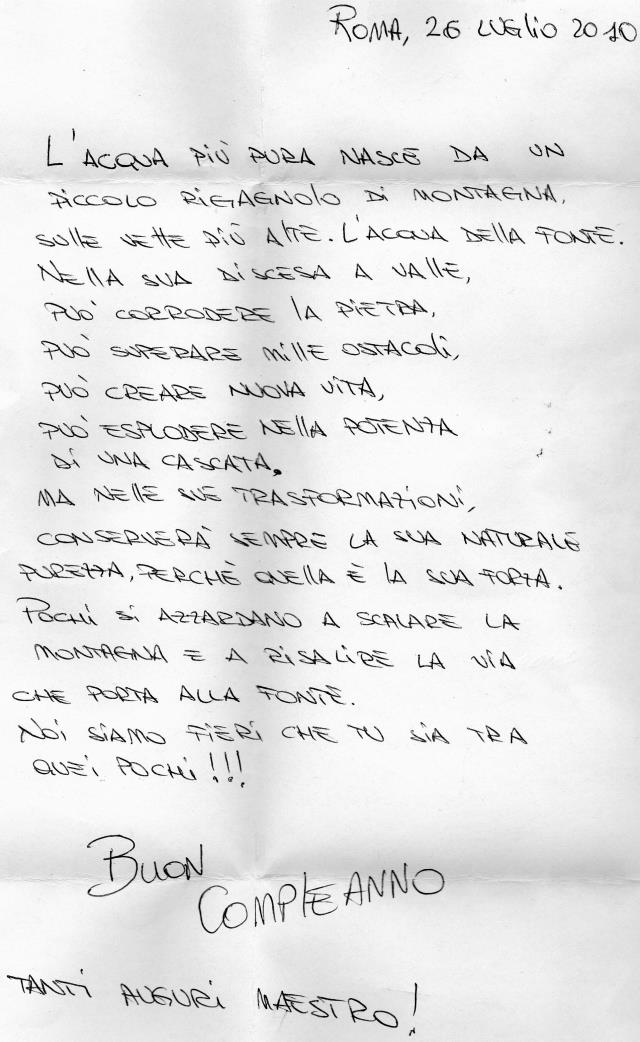 ROMA, 26 LUGLIO 2010
L'ACQUA PIÙ PURA NASCE DA UN
PICCOLO RIGAGNOLO DI MONTAGNA,
SULLE VETTE PIÙ ALTE. L'ACQUA DELLA FONTE.
NELLA SUA DISCESA A VALLE,
PUÒ CORRODERE LA PIETRA,
PUÒ SUPERARE MILLE OSTACOLI,
PUÒ CREARE NUOVA VITA,
PUÒ ESPLODERE NELLA POTENZA
DI UNA CASCATA.
MA NELLE SUE TRASFORMAZIONI,
CONSERVERÀ SEMPRE LA SUA NATURALE
PUREZZA, PERCHÈ QUELLA È LA SUA FORZA.
POCHI SI AZZARDANO A SCALARE LA
MONTAGNA E A RISALIRE LA VIA
CHE PORTA ALLA FONTE.
NOI SIAMO FIERI CHE TU SIA TRA
QUEI POCHI!!!
BUON
COMPLEANNO
TANTI AUGURI MAESTRO!